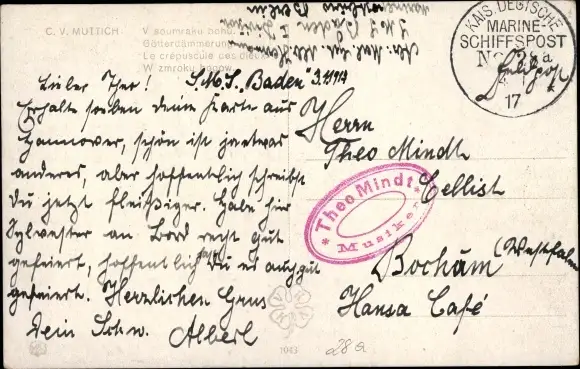 C. V. MUTTICH:
V soumraku bohů.
Götterdämmerung.
Le crépuscule des dieux.
W zmroku bogów.
S.M.S. Baden I.
KAIS. DEUTSCHE
MARINE-
SCHIFFSPOST
No
17
Feldpost
Lieber Theo! S.M.S. "Baden" 3.1.1918
Erhalte soeben deine Karte aus
Hannover, schön ist ja etwas
anderes, aber hoffentlich schreibst
Du jetzt fleißiger. Habe hier
Sylvester an Bord recht gut
gefeiert, hoffentlich hast Du es auch gut
gefeiert. Herzlichen Gruss
Dein Schw. Albert
Herrn
Theo Mindt
Cellist
Bochum (Westfalen
Hansa Café
* Theo Mindt *
Musiker
1043
28a